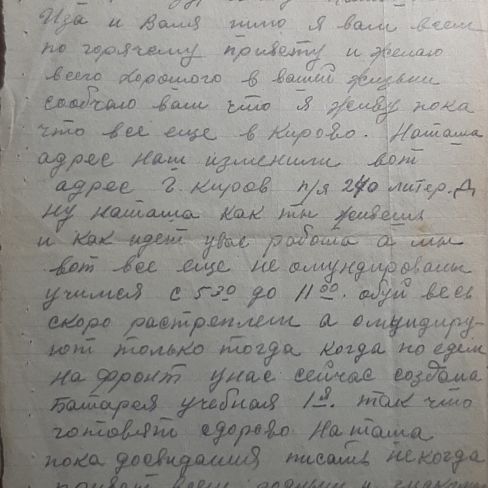 Ида и Валя шлю я вам всем
по горячему привету и желаю
всего хорошого в вашей жизьни
сообчаю вам что я живу пока
что все еще в Кирово. Наташа
адрес наш изменили вот
адрес г. Киров п/я 240 литер. Д
ну наташа как ты живешь
и как идет увас работа а мы
вот все еще не омундированы
учимся с 5 30 до 11 00. обуй весь
скоро растреплем а омундиру-
ют только тогда когда поедем
на фронт унас сейчас создана
батарея учебная 1я. так что
готовят здорово Наташа
пока досвидания писать некогда
привет всем родным и знакомым